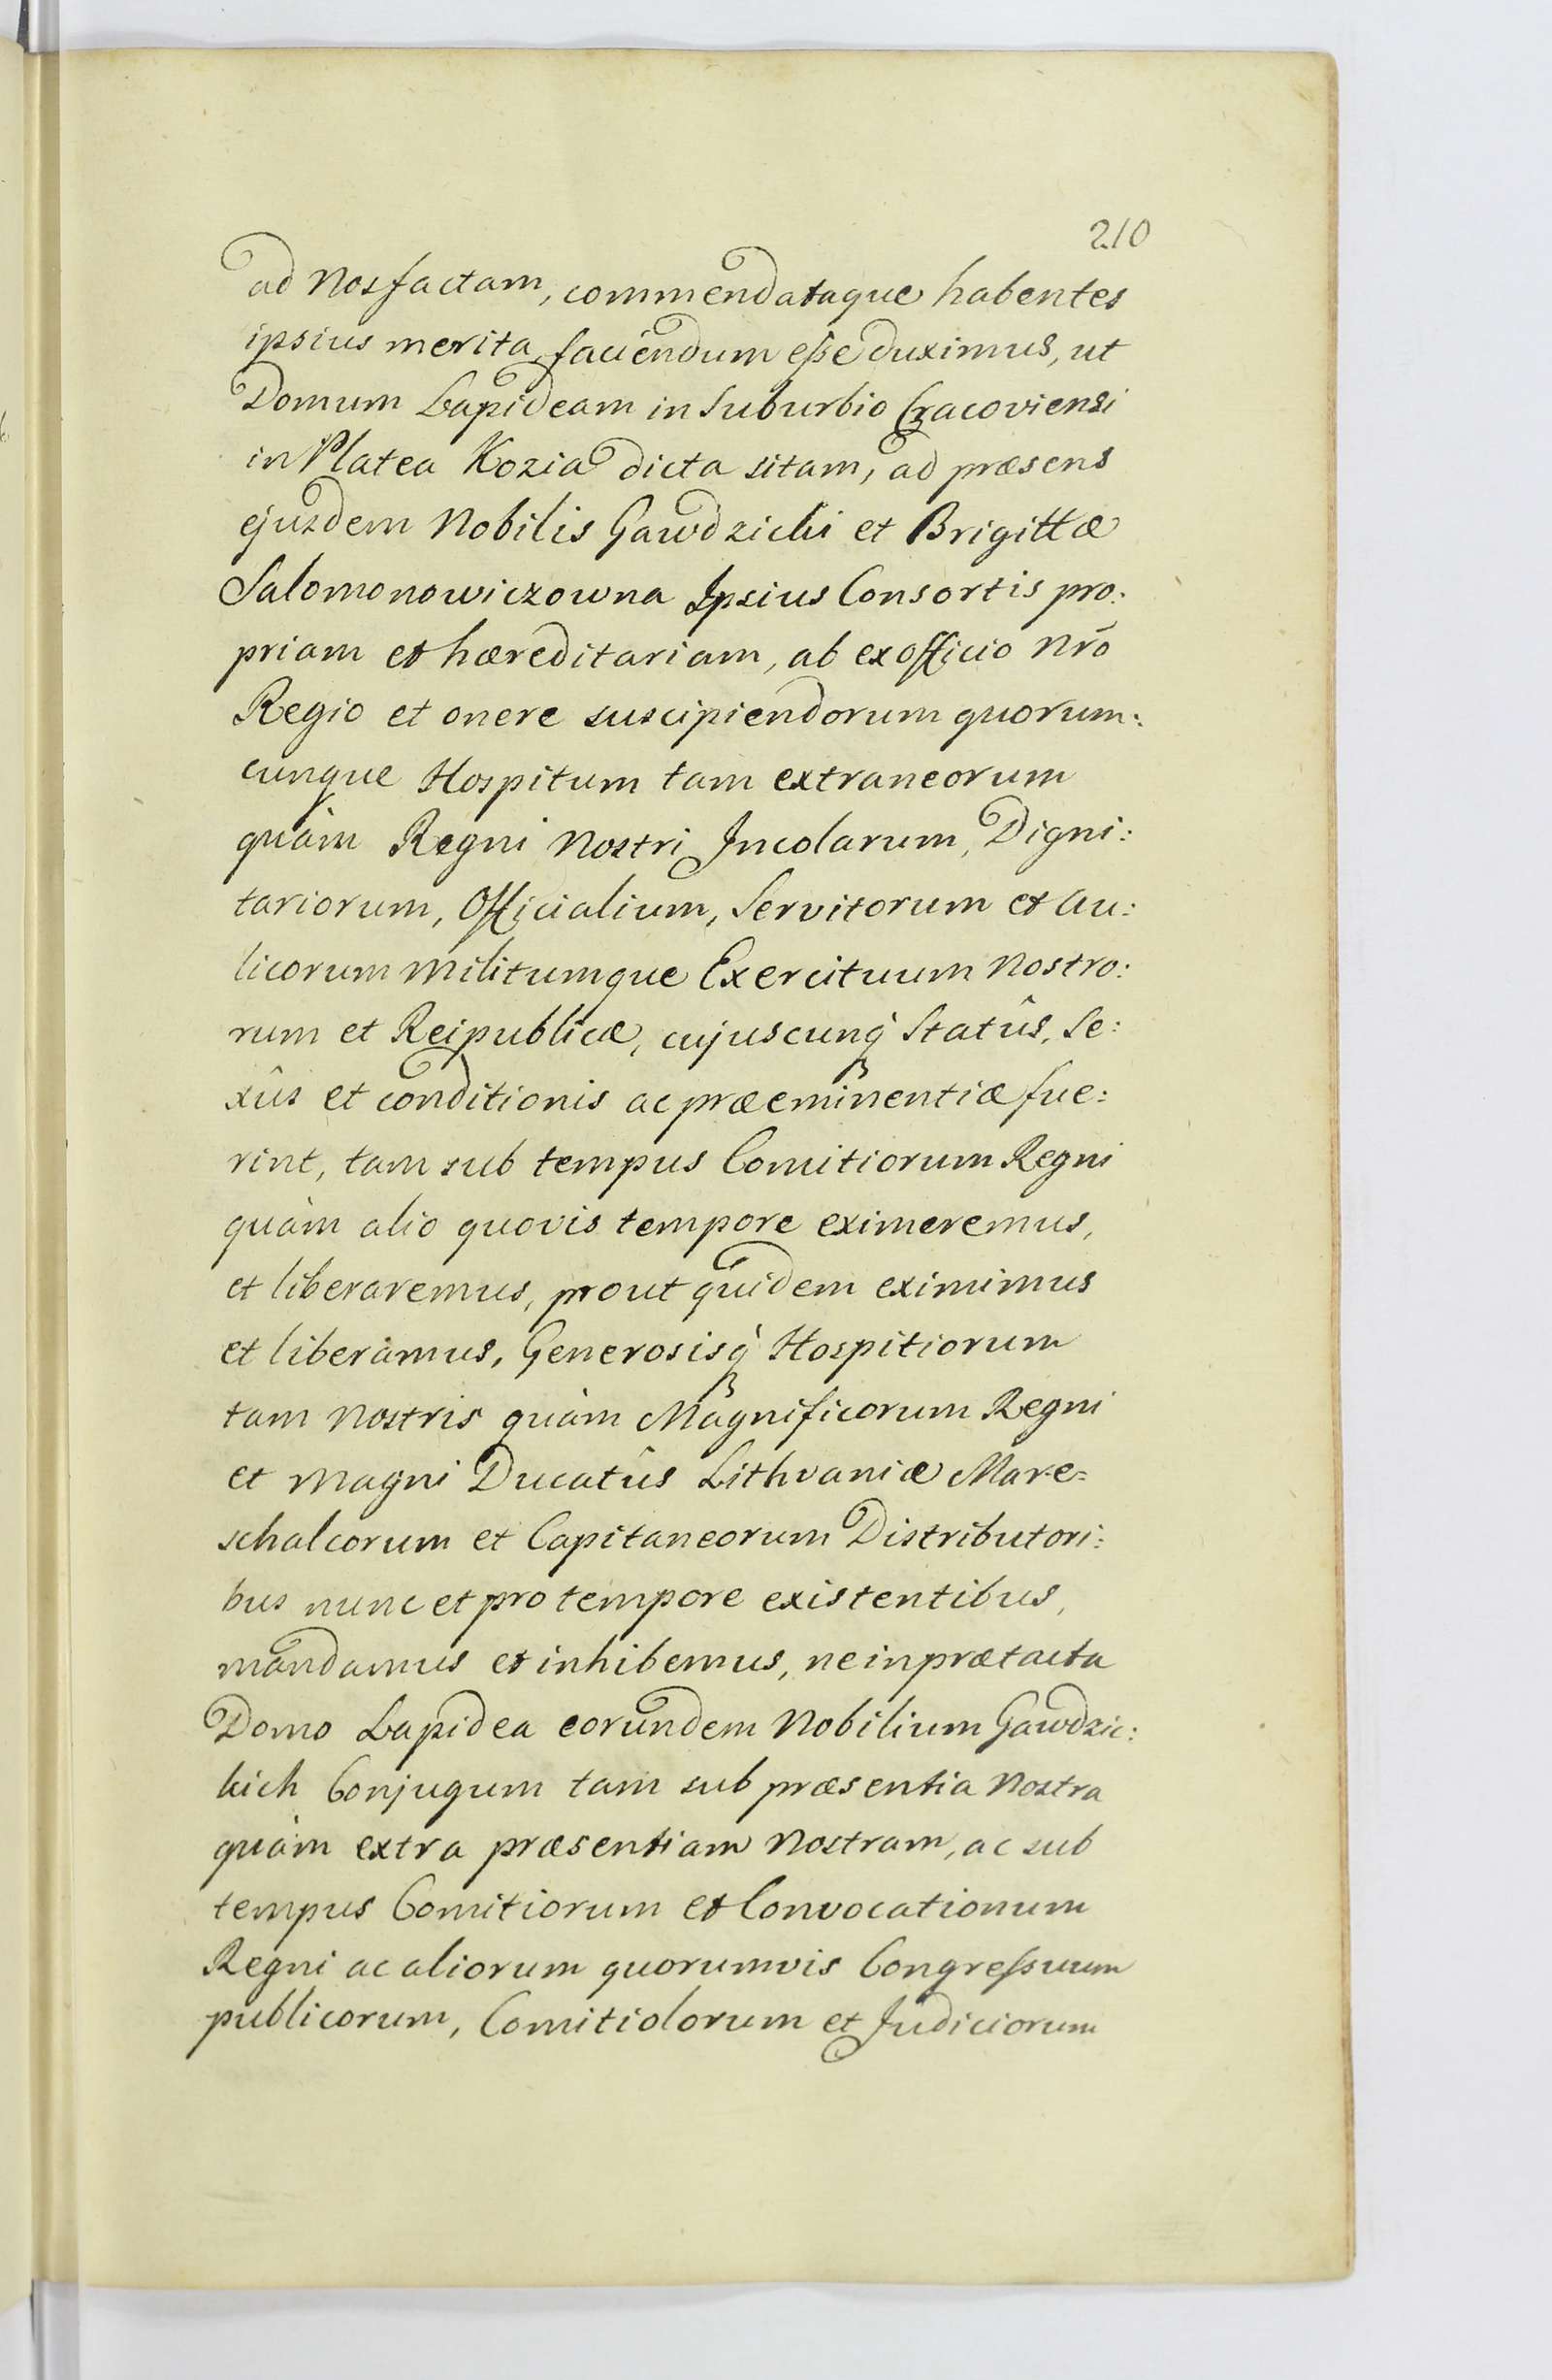 210
ad Nos factam, commendataque habentes
ipsius merita, faciendum esse duximus, ut
Domum Lapideam in Suburbio Cracoviensi
in Platea Kozia dicta sitam, ad præsens
ejusdem Nobilis Gawdzicki et Brigittæ
Salomonowiczowna Ipsius Consortis pro:
priam et hæreditariam, ab ex officio Nrō
Regio et onere suscipiendorum quorum:
cunque Hospitum tam extraneorum
quàm Regni Nostri Incolarum, Digni:
tariorum, Officialium, Servitorum et Au:
licorum Militumque Exercituum Nostro:
rum et Reipublicæ, cujuscunq̀ Statûs, Se:
xûs et conditionis ac præeminentiæ fue:
rint, tam sub tempus Comitiorum Regni
quàm alio quovis tempore eximeremus,
et liberaremus, prout quidem eximimus
et liberamus, Generosisq̀ Hospitiorum
tam Nostris quàm Magnificorum Regni
et Magni Ducatûs Lithvaniæ Mare=
schalcorum et Capitaneorum Distributori:
bus nunc et pro tempore existentibus,
mandamus et inhibemus, ne in prætacta
Domo Lapidea eorundem Nobilium Gawdzic:
kich Conjugum tam sub præsentia Nostra
quàm extra præsentiam Nostram, ac sub
tempus Comitiorum et Convocationum
Regni ac aliorum quorumvis Congressuum
publicorum, Comitiolorum et Judiciorum